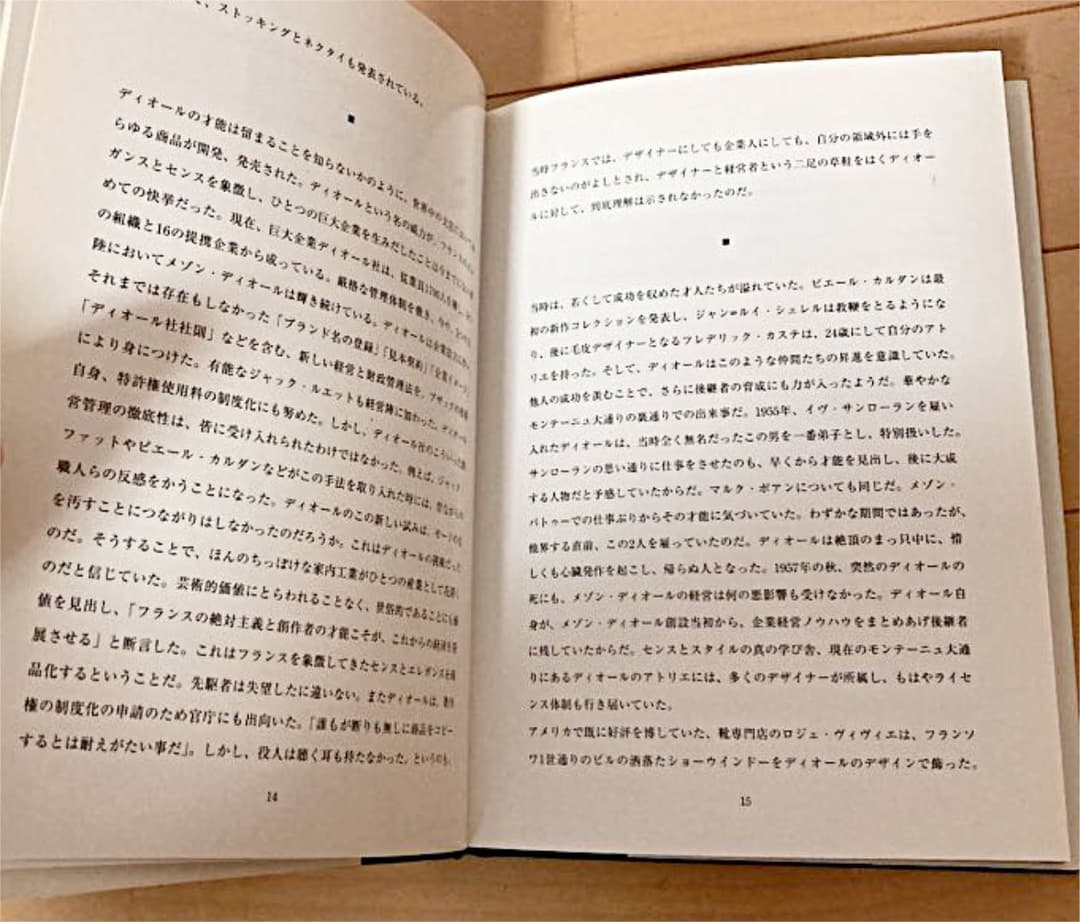 、ストッキングとネクタイも発表されている。
■
ディオールの才能は留まることを知らないかのように、世界中の
らゆる商品が開発、発売された。ディオールという名の威力が、フランスの
ガンスとセンスを象徴し、ひとつの巨大企業を生みだしたことは今まで
めての快挙だった。現在、巨大企業ディオール社は、従業員
の組織と16の提携企業から成っている。厳格な管理体制を敷き、今や、
陸においてメゾン・ディオールは輝き続けている。ディオールは企業
それまでは存在もしなかった「ブランド名の登録」「見本契約」「企業イメージ」
「ディオール社社則」などを含む、新しい経営と財政管理法を、ブサックの
により身につけた。有能なジャック・ルエットも経営陣に加わった。ディオール
自身、特許権使用料の制度化にも努めた。しかし、ディオール社のこういった
営管理の徹底性は、皆に受け入れられたわけではなかった。例えば、ジャック・
ファットやピエール・カルダンなどがこの手法を取り入れた時には、昔ながらの
職人らの反感をかうことになった。ディオールのこの新しい試みは、モードの
を汚すことにつながりはしなかったのだろうか。これはディオールの戦略だった
のだ。そうすることで、ほんのちっぽけな家内工業がひとつの産業として花開く
のだと信じていた。芸術的価値にとらわれることなく、世俗的であることにも価
値を見出し、「フランスの絶対主義と創作者の才能こそが、これからの経済を発
展させる」と断言した。これはフランスを象徴してきたセンスとエレガンスを商
品化するということだ。先駆者は失望したに違いない。またディオールは、著作
権の制度化の申請のため官庁にも出向いた。「誰もが断りも無しに商品をコピー
するとは耐えがたい事だ」。しかし、役人は聴く耳も持たなかった。というのも、
14
当時フランスでは、デザイナーにしても企業人にしても、自分の領域外には手を
出さないのがよしとされ、デザイナーと経営者という二足の草鞋をはくディオー
ルに対して、到底理解は示されなかったのだ。
■
当時は、若くして成功を収めた才人たちが溢れていた。ピエール・カルダンは最
初の新作コレクションを発表し、ジャン=ルイ・シェレルは教鞭をとるようにな
り、後に毛皮デザイナーとなるフレデリック・カステは、24歳にして自分のアト
リエを持った。そして、ディオールはこのような仲間たちの昇進を意識していた。
他人の成功を羨むことで、さらに後継者の育成にも力が入ったようだ。華やかな
モンテーニュ大通りの裏通りでの出来事だ。1955年、イヴ・サンローランを雇い
入れたディオールは、当時全く無名だったこの男を一番弟子とし、特別扱いした。
サンローランの思い通りに仕事をさせたのも、早くから才能を見出し、後に大成
する人物だと予感していたからだ。マルク・ボアンについても同じだ。メゾン・
パトゥーでの仕事ぶりからその才能に気づいていた。わずかな期間ではあったが、
他界する直前、この2人を雇っていたのだ。ディオールは絶頂のまっ只中に、惜
しくも心臓発作を起こし、帰らぬ人となった。1957年の秋、突然のディオールの
死にも、メゾン・ディオールの経営は何の悪影響も受けなかった。ディオール自
身が、メゾン・ディオール創設当初から、企業経営ノウハウをまとめあげ後継者
に残していたからだ。センスとスタイルの真の学び舎、現在のモンテーニュ大通
りにあるディオールのアトリエには、多くのデザイナーが所属し、もはやライセ
ンス体制も行き届いていた。
アメリカで既に好評を博していた、靴専門店のロジェ・ヴィヴィエは、フランソ
ワ1世通りのビルの洒落たショーウインドーをディオールのデザインで飾った。
15